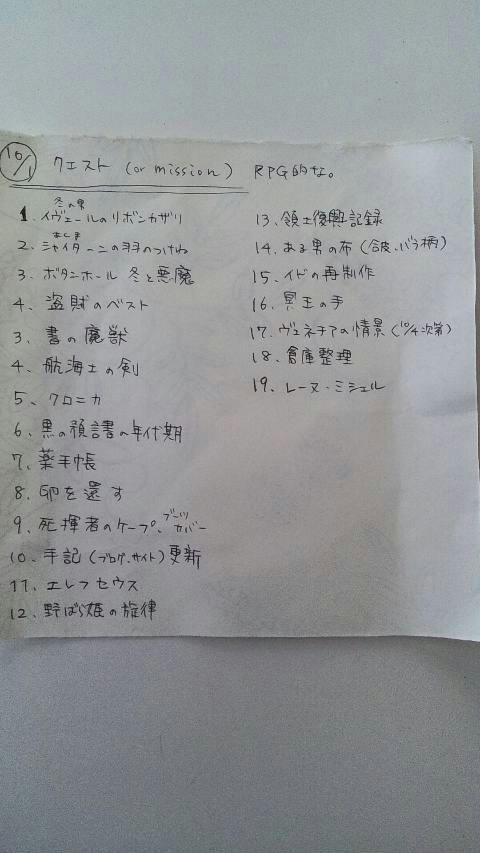 10/1 クエスト (or mission) RPG的な。
冬の男
1. イヴェールのリボンカザリ
2. シャイターンの羽のつけね
3. ボタンホール 冬と悪魔
4. 盗賊のベスト
3. 書の魔獣
4. 航海士の剣
5、クロニカ
6、黒の預言書の年代期
7、薬手帳
8、卵を還す
9、死揮者のケープ、ブーツカバー
10、手記(ブログ、サイト)更新
11、エレフセウス
12、野ばら姫の旋律
13、領土復興記録
14、ある男の布(合皮、バラ柄)
15、イドの再制作
16、冥王の手
17、ヴェネチアの情景(10/4次第)
18、倉庫整理
19、レーヌ・ミシェル